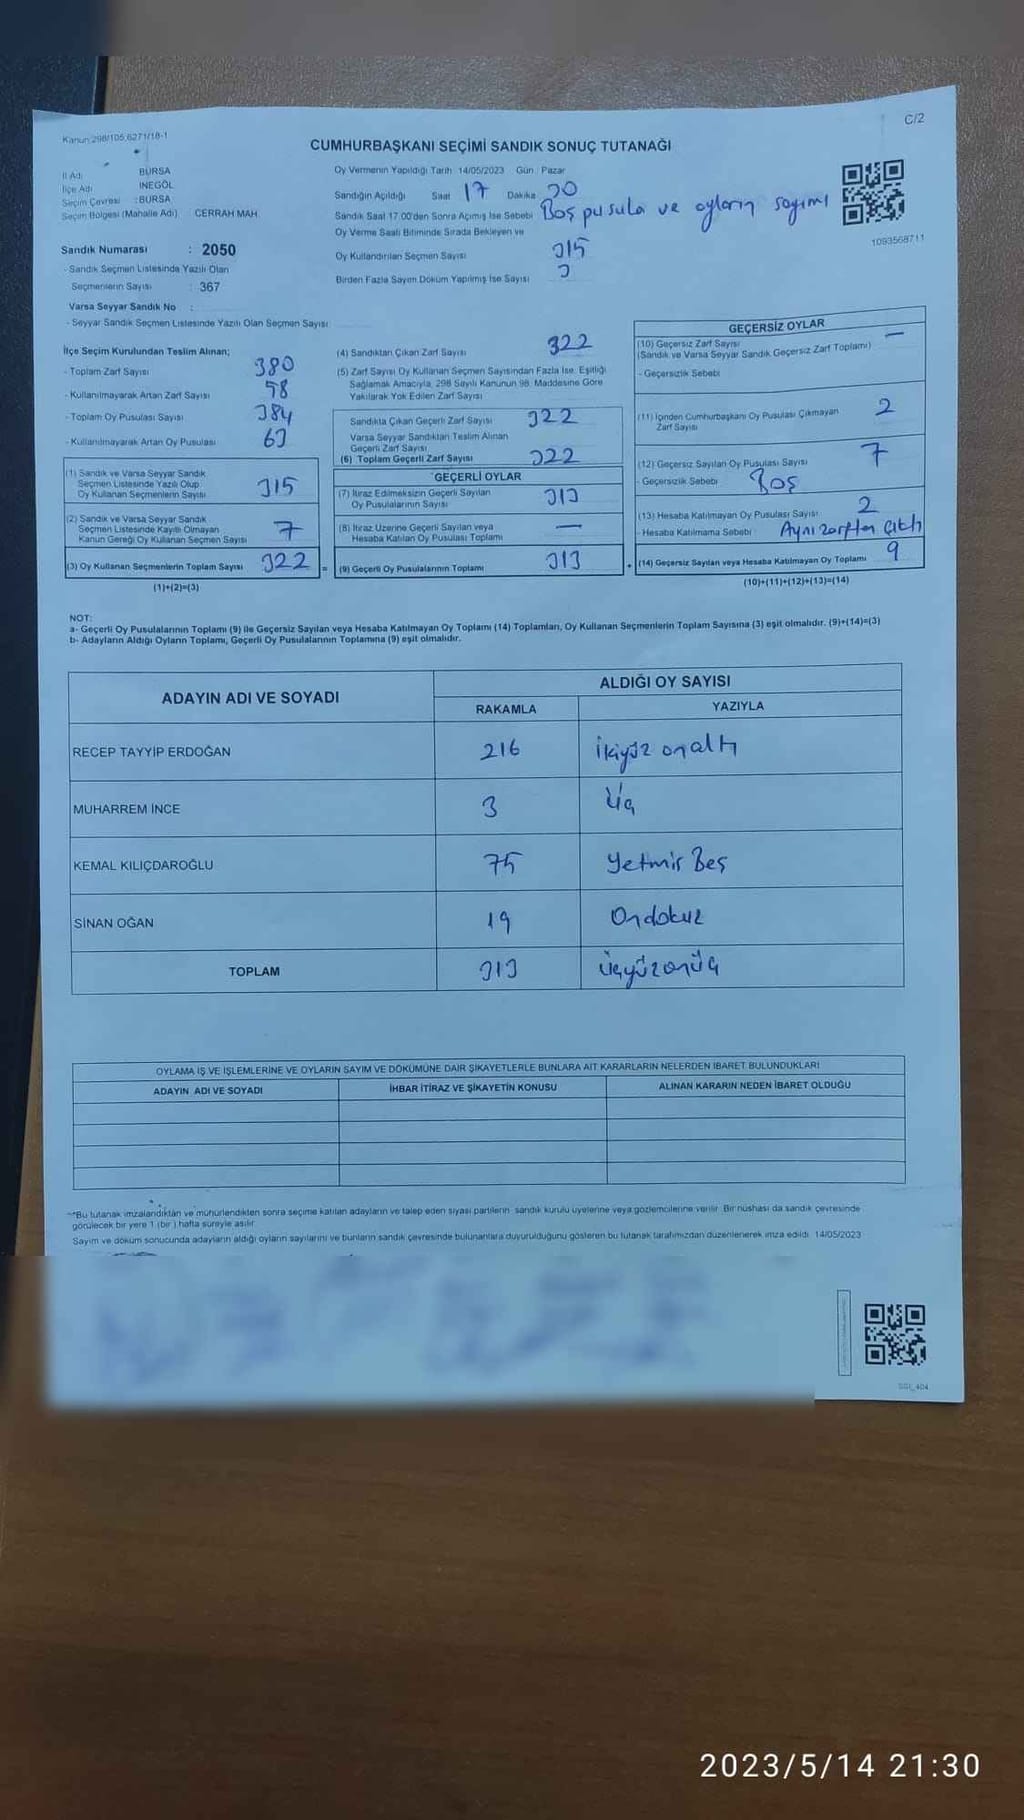 Kanun 298/105,6271/18-1
C/2
CUMHURBAŞKANI SEÇİMİ SANDIK SONUÇ TUTANAĞI
İl Adı : BURSA
İlçe Adı : İNEGÖL
Seçim Çevresi : BURSA
Seçim Bölgesi (Mahalle Adı) CERRAH MAH.
Sandık Numarası : 2050
- Sandık Seçmen Listesinde Yazılı Olan
Seçmenlerin Sayısı : 367
Varsa Seyyar Sandık No :
- Seyyar Sandık Seçmen Listesinde Yazılı Olan Seçmen Sayısı
Oy Vermenin Yapıldığı Tarih 14/05/2023 Gün : Pazar
Sandığın Açıldığı Saat 17 Dakika 30
Sandık Saat 17.00'den Sonra Açımış İse Sebebi Boş pusula ve oyların sayımı
Oy Verme Saati Bitiminde Sırada Bekleyen ve
Oy Kullandırılan Seçmen Sayısı 315
Birden Fazla Sayım Döküm Yapılmış İse Sayısı
1093568711
İlçe Seçim Kurulundan Teslim Alınan;
- Toplam Zarf Sayısı 380
- Kullanılmayarak Artan Zarf Sayısı 58
- Toplam Oy Pusulası Sayısı 384
- Kullanılmayarak Artan Oy Pusulası 63
(1) Sandık ve Varsa Seyyar Sandık
Seçmen Listesinde Yazılı Olup
Oy Kullanan Seçmenlerin Sayısı 315
(2) Sandık ve Varsa Seyyar Sandık
Seçmen Listesinde Kayıtlı Olmayan
Kanun Gereği Oy Kullanan Seçmen Sayısı 7
(3) Oy Kullanan Seçmenlerin Toplam Sayısı 322 =
(1)+(2)=(3)
(4) Sandıktan Çıkan Zarf Sayısı 322
(5) Zarf Sayısı Oy Kullanan Seçmen Sayısından Fazla İse, Eşitliği
Sağlamak Amacıyla, 298 Sayılı Kanunun 98. Maddesine Göre
Yakılarak Yok Edilen Zarf Sayısı
Sandıkta Çıkan Geçerli Zarf Sayısı 322
Varsa Seyyar Sandıktan Teslim Alınan
Geçerli Zarf Sayısı
(6) Toplam Geçerli Zarf Sayısı 322
GEÇERLİ OYLAR
(7) İtiraz Edilmeksizin Geçerli Sayılan
Oy Pusulalarının Sayısı 313
(8) İtiraz Üzerine Geçerli Sayılan veya
Hesaba Katılan Oy Pusulası Toplamı —
(9) Geçerli Oy Pusulalarının Toplamı 313 +
GEÇERSİZ OYLAR
(10) Geçersiz Zarf Sayısı —
(Sandık ve Varsa Seyyar Sandık Geçersiz Zarf Toplamı)
- Geçersizlik Sebebi
(11) İçinden Cumhurbaşkanı Oy Pusulası Çıkmayan 2
Zarf Sayısı
(12) Geçersiz Sayılan Oy Pusulası Sayısı 7
- Geçersizlik Sebebi Boş
(13) Hesaba Katılmayan Oy Pusulası Sayısı 2
- Hesaba Katılmama Sebebi Aynı zarftan çıktı
(14) Geçersiz Sayılan veya Hesaba Katılmayan Oy Toplamı 9
(10)+(11)+(12)+(13)=(14)
NOT:
a- Geçerli Oy Pusulalarının Toplamı (9) ile Geçersiz Sayılan veya Hesaba Katılmayan Oy Toplamı (14) Toplamları, Oy Kullanan Seçmenlerin Toplam Sayısına (3) eşit olmalıdır. (9)+(14)=(3)
b- Adayların Aldığı Oyların Toplamı, Geçerli Oy Pusulalarının Toplamına (9) eşit olmalıdır.
ADAYIN ADI VE SOYADI
ALDIĞI OY SAYISI
RAKAMLA YAZIYLA
RECEP TAYYİP ERDOĞAN 216 İkiyüz onaltı
MUHARREM İNCE 3 Üç
KEMAL KILIÇDAROĞLU 75 Yetmiş Beş
SİNAN OĞAN 19 Ondokuz
TOPLAM 313 Üçyüzonüç
OYLAMA İŞ VE İŞLEMLERİNE VE OYLARIN SAYIM VE DÖKÜMÜNE DAİR ŞİKAYETLERLE BUNLARA AİT KARARLARIN NELERDEN İBARET BULUNDUKLARI
ADAYIN ADI VE SOYADI İHBAR İTİRAZ VE ŞİKAYETİN KONUSU ALINAN KARARIN NEDEN İBARET OLDUĞU
**Bu tutanak imzalandıktan ve mühürlendikten sonra seçime katılan adayların ve talep eden siyasi partilerin sandık kurulu üyelerine veya gözlemcilerine verilir. Bir nüshası da sandık çevresinde
görülecek bir yere 1 (bir ) hafta süreyle asılır.
Sayım ve döküm sonucunda adayların aldığı oyların sayılarını ve bunların sandık çevresinde bulunanlara duyurulduğunu gösteren bu tutanak tarafımızdan düzenlenerek imza edildi. 14/05/2023
2023/5/14 21:30